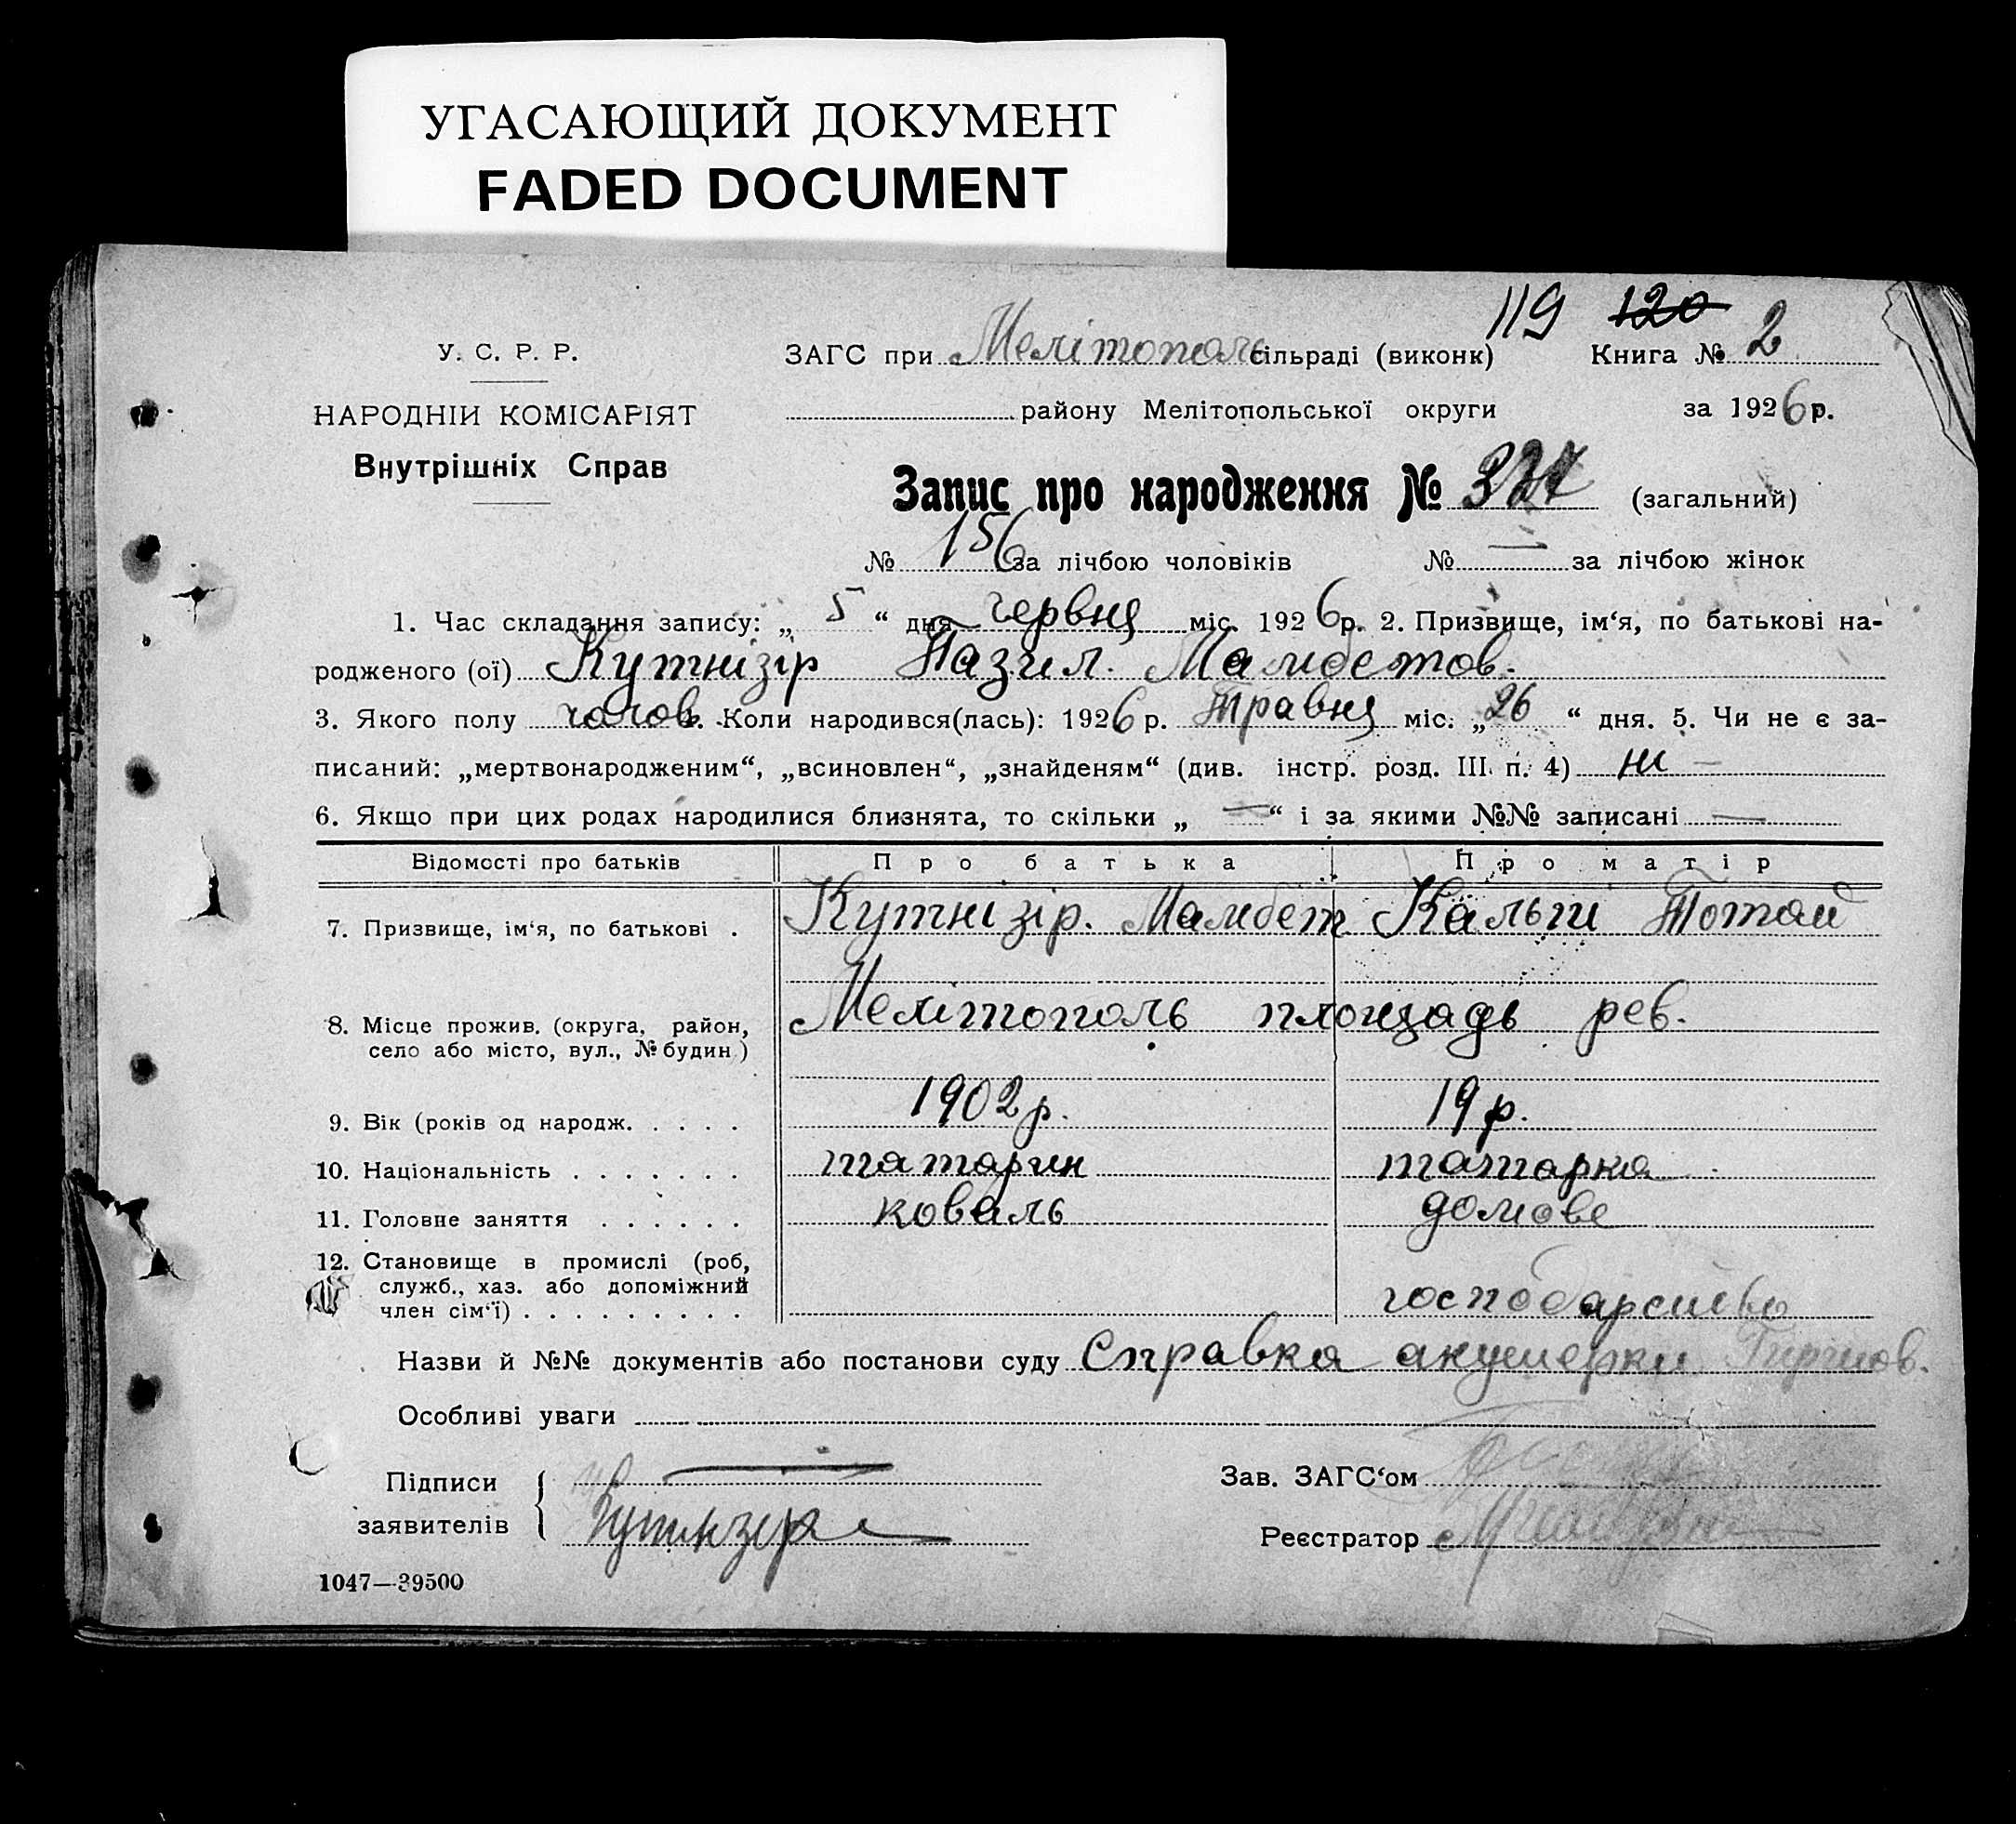 УГАСАЮЩИЙ ДОКУМЕНТ
FADED DOCUMENT
119 120
У. С. Р. Р.
ЗАГС при Мелітополь сільраді (виконк) Книга № 2
НАРОДНІЙ КОМІСАРІЯТ
району Мелітопольської округи за 1926 р.
Внутрішніх Справ
Запис про народження № (загальний)
№ 156 за лічбою чоловіків № — за лічбою жінок
1. Час складання запису: „ 5 “ дня червня міс. 1926 р. 2. Призвище, ім‘я, по батькові на-
родженого (ої) Кутнізір Пазил. Мамбетов.
3. Якого полу чолов. Коли народився(лась): 1926 р. Травня міс. „ 26 “ дня. 5. Чи не є за-
писаний: „мертвонародженим“, „всиновлен“, „знайденям“ (див. інстр. розд. III п. 4) ні —
6. Якщо при цих родах народилися близнята, то скільки „ — “ і за якими №№ записані —
Відомості про батьків Про батька Про матір
7. Призвище, ім‘я, по батькові . Кутнізір. Мамбет Тотай
8. Місце прожив. (округа, район, Мелітополь площадь рев.
село або місто, вул., № будин.)
9. Вік (років од народж. . . . . 1902 р. 19 р.
10. Національність . . . . . . . татарин татарка
11. Головне заняття . . . . . . коваль домове
12. Становище в промислі (роб,
служб., хаз. або допоміжний
член сім‘ї) . . . . . . . . . господарство
Назви й №№ документів або постанови суду Справка акушерки
Особливі уваги
Підписи
заявителів
Зав. ЗАГС‘ом
Реєстратор
1047—39500